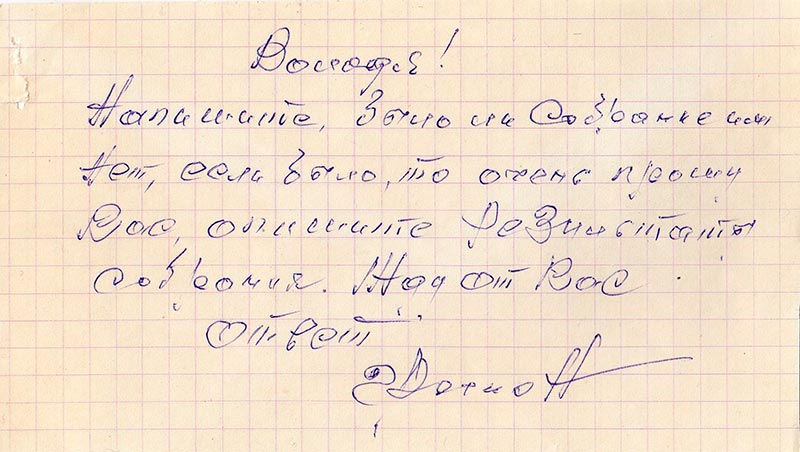 Володя!
Напишите, было ли собрание или
нет, если было, то очень прошу
Вас, опишите результаты
собрания. Жду от Вас
ответ